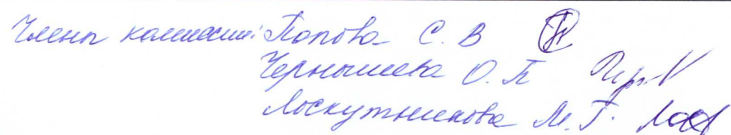 Члены комиссии: Попова С. В
Чернышева О. П
Лоскутникова М. Г.